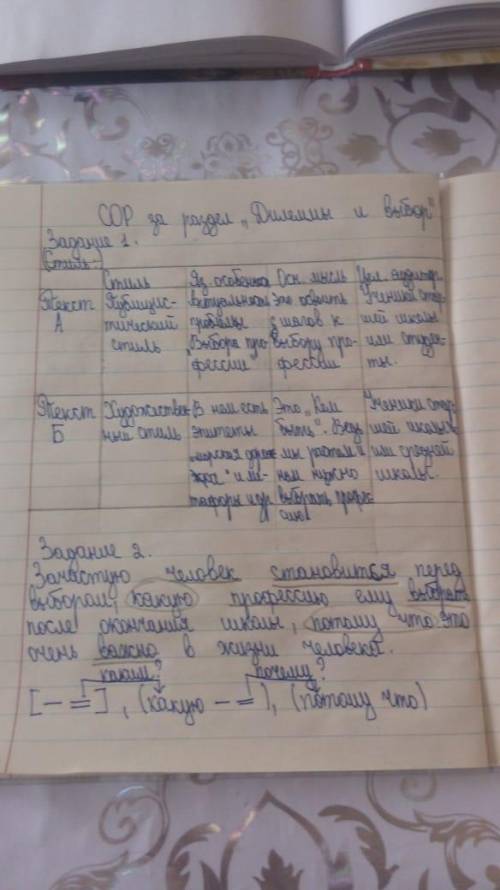 СОР за раздел „Дилеммы и выбор"
Задание 1.
Стиль:
Стиль Яз. особенно Осн. мысль Цел. аудитор.
Текст А
Публицис-
тический
стиль
Актуальность
проблемы
„Выбора про-
фессии"
Это освоить
5 шагов к
выбору про-
фессии
Ученики стар-
шей школы
или студен-
ты.
Текст Б
Художествен-
ный стиль
В нем есть
эпитеты
и ме-
тафоры и др
Это „Кем
быть". Ведь
мы растем и
нам нужно
выбирать профес-
сию!
Ученики стар-
шей школы
или средней
школы.
Задание 2.
Зачастую человек становится перед
выбором, какую профессию ему выбрать
после окончания школы, потому что это
очень важно в жизни человека.
каким? почему?
[— =], (какую — =), (потому что)